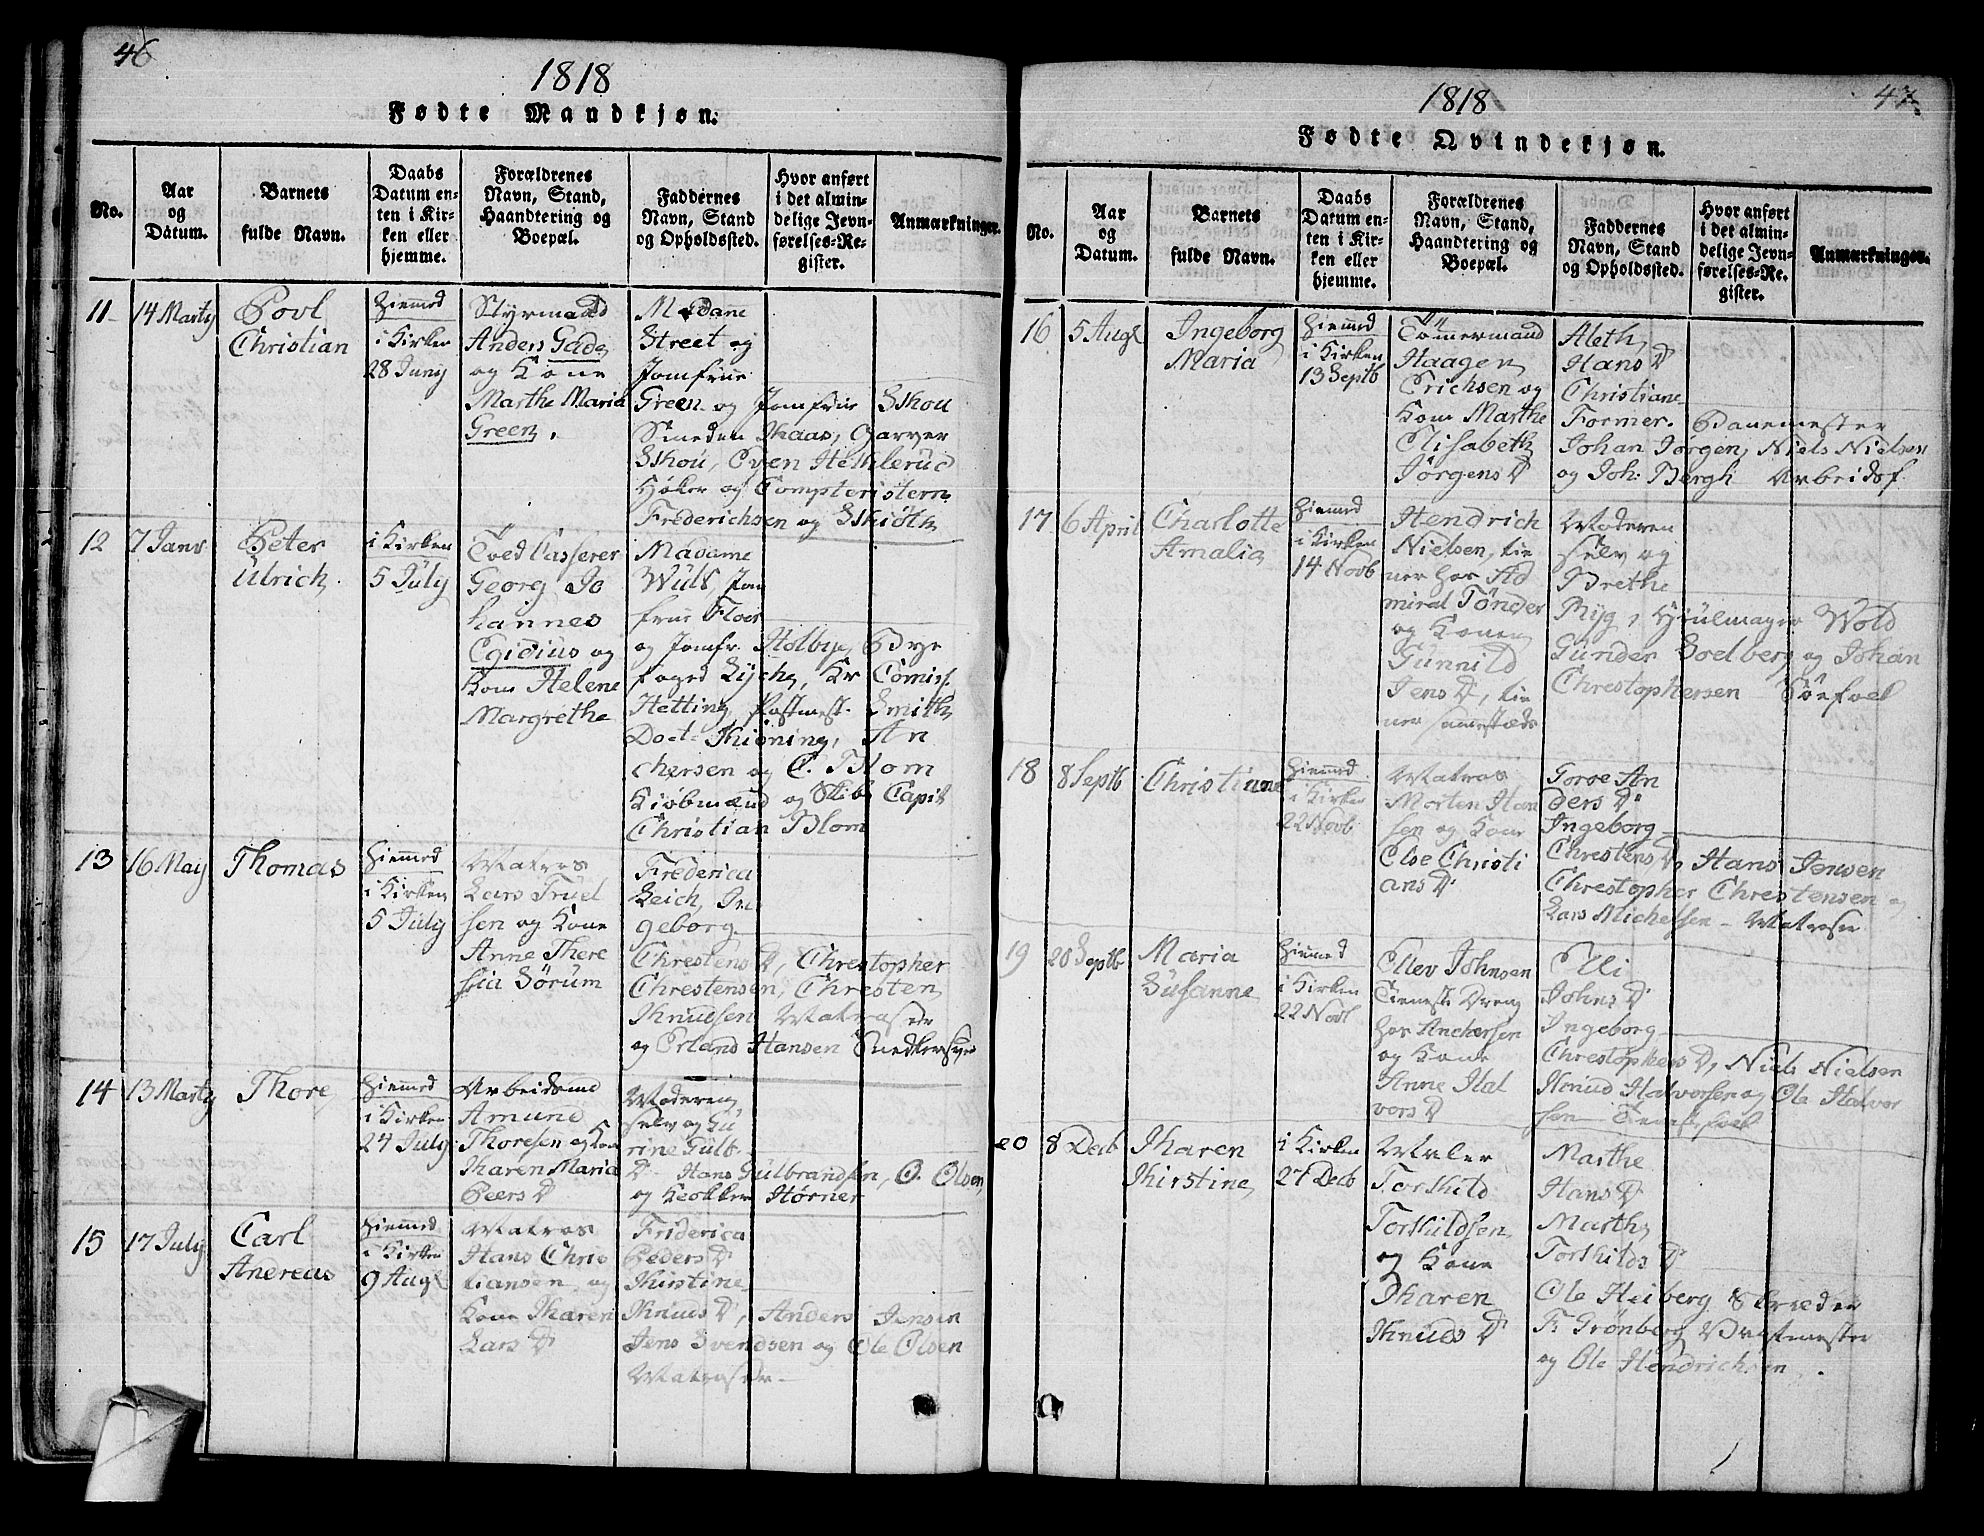 46
1818
Fødte Mandkjøn.
No.
Aar
og
Datum.
Barnets
fulde Navn.
Daabs
Datum en-
ten i Kir-
ken eller
hjemme.
Forældrenes
Navn, Stand,
Haandtering og
Boepæl.
Faddernes
Navn, Stand
og Opholdssted.
Hvor anført
i det almin-
delige Jevn-
førelses-Re-
gister.
Anmærkninger.
11
14 Marty
Povl
Christian
Hiemed
i Kirken
28 Juny
Styrmand
Anders Gade
og Kone
Marthe Maria
Green
Madame
Street og
Jomfrue
Green og Jomfrue Skou
Smeden Khaas, Garver
Skou, Even Hesklerud
Høker og
Frederichsen og Skiøth
12
7 Janv
Peter
Ulrich
i Kirken
5 July
Toed Casserer
Georg Jo
hannes
Egidius og
Kone Helene
Margrethe
Madame
Wuls, Jom
frue Floer
og Jomfr Holby, Bye
foged Lyche, Kr Comiss
Hetting, Postmest. Smith
Doct. Thioning, An
chersen og C. Blom
Kiøbmænd og Skibs Capit
Christian Blom
13
16 May
Thomas
Hiemed
i Kirken
5 July
Matros
Lars Truel
sen og Kone
Anne There
sia Sørum
Frederica
Leich, In
geborg
Chrestens D, Chrestopher
Chrestensen, Chresten
Knudsen Matroser
og Erland Hansen Snedkersv
14
13 Marty
Thore
Hiemed
i Kirken
24 July
Arbeidsmd
Amund
Thoresen og Kone
Karen Maria
Peers D
Moderen
selv og Gu
rine Gulb
D Hans Gulbrandsen, O. Olsen
og Klokker Hörner
15
17 July
Carl
Andreas
Hiemed
i Kirken
9 Augl
Matros
Hans Chris
tiansen og
Kone Karen
Lars D
Friderica
Peders D
Kirstine
Knuds D, Anders Jensen
Jens Svendsen og Ole Olsen
Matroser
47
1818
Fødte Qvindekjøn.
No.
Aar
og
Datum.
Barnets
fulde Navn.
Daabs
Datum en-
ten i Kir-
ken eller
hjemme.
Forældrenes
Navn, Stand,
Haandtering og
Boepæl.
Faddernes
Navn, Stand
og Opholdssted.
Hvor anført
i det almin-
delige Jevn-
førelses-Re-
gister.
Anmærkninger.
16
5 Augl
Ingeborg
Maria
Hiemed
i Kirken
13 Septb
Tömermand
Haagen
Erichsen og
Kone Marthe
Elisabeth
Jørgens D
Aleth
Hans D
Christiane
Former. Banemester
Johan Jørgen, Niels Nielsen
og Joh: Bergh Arbeidsf.
17
6 April
Charlotte
Amalia
Hiemed
i Kirken
14 Novb
Hendrich
Nielsen, tie
ner hos Ad
miral Tönder
og Konen
Gunnild
Jens D, tie
ner sammestæds
Moderen
selv og
Brethe
Ryg, Hiulmager Wold
Gunder Soelberg og Johan
Chrestophersen Söefoel
18
8 Septb
Christiane
Hiemed
i Kirken
22 Novb
Matros
Morten Han
sen og Kone
Else Christi
ans D
Goroe An
ders D
Ingeborg
Chrestens D, Hans Jensen
Chrestopher Chrestensen og
Lars Michelsen - Matroser
19
20 Septb
Maria
Susanne
Hiemed
i Kirken
22 Novb
Ellev Johnsen
Tieneste Dreng
hos Anchersen
og Kone
Anne Hal
vors D
Elli
Johns D
Ingeborg
Chrestophers D, Niels Nielsen
Knud Halvorsen og Ole Halvor
sen
20
8 Decb
Karen
Kirstine
i Kirken
27 Decb
Maler
Torkild
Torkildsen
og Kone
Karen
Knuds D
Marthe
Hans D
Marthe
Torkilds D
Ole Heiberg Skræder
F. Grönberg
og Ole Hendrichsen